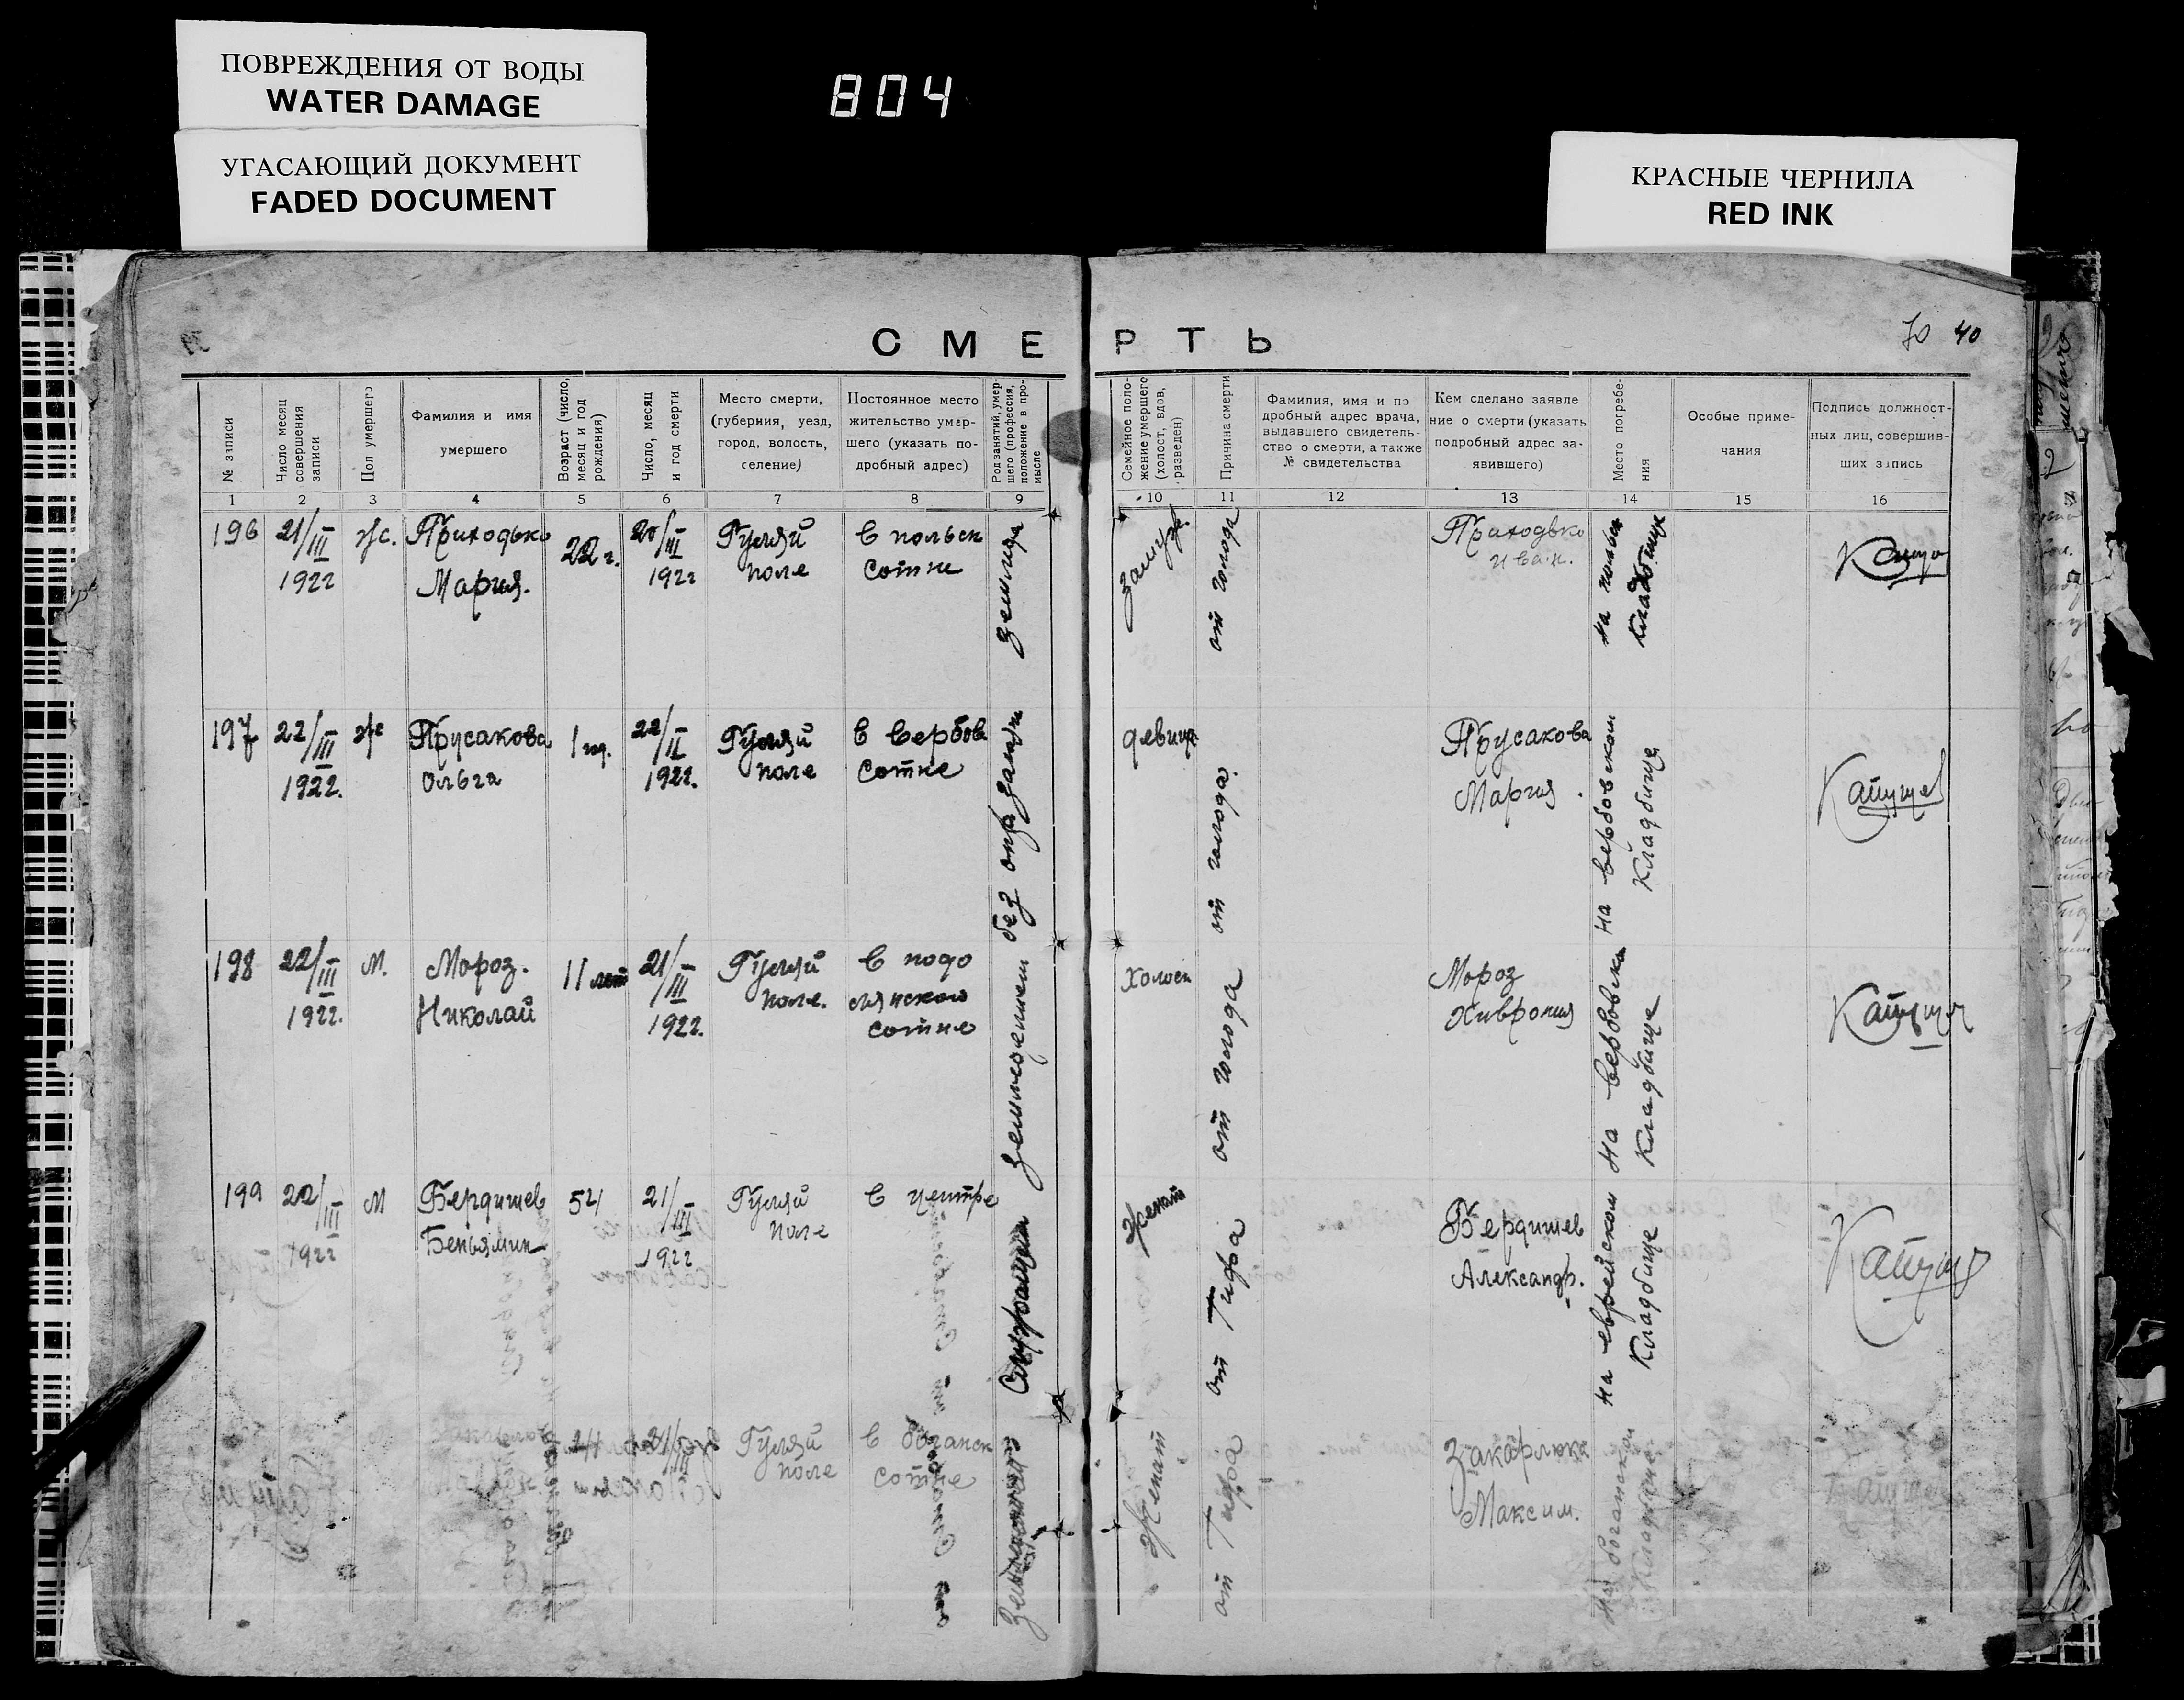 ПОВРЕЖДЕНИЯ ОТ ВОДЫ
WATER DAMAGE
УГАСАЮЩИЙ ДОКУМЕНТ
FADED DOCUMENT
804
КРАСНЫЕ ЧЕРНИЛА
RED INK
СМЕРТЬ
70 40
№ записи
Число месяц
совершения
записи
Пол умершего
Фамилия и имя
умершего
Возраст (число,
месяц и год
рождения)
Число, месяц
и год смерти
Место смерти,
(губерния, уезд,
город, волость,
селение)
Постоянное место
жительство умер-
шего (указать по-
дробный адрес)
Род занятий, умер-
шего (профессия,
положение в про-
мысле
Семейное поло-
жение умершего
(холост, вдов,
разведен)
Причина смерти
Фамилия, имя и по
дробный адрес врача,
выдавшего свидетель-
ство о смерти, а также
№ свидетельства
Кем сделано заявле
ние о смерти (указать
подробный адрес за-
явившего)
Место погребе-
ния
Особые приме-
чания
Подпись должност-
ных лиц, совершив-
ших запись
1 2 3 4 5 6 7 8 9 10 11 12 13 14 15 16
196
21/III
1922
ж.
Приходько
Мария.
22 г.
20/III
1922
Гуляй
поле
в польск
сотне
земледе
замуж.
от голода
Приходько
Иван.
на польск
кладбище
197
22/III
1922.
ж
Прусакова
Ольга
1
22/II
1922.
Гуляй
поле
в вербов
сотне
без опр занят
девица
от голода
Прусакова
Мария
на вербовском
кладбище
198
22/III
1922.
м.
Мороз.
Николай
11 лет
21/III
1922.
Гуляй
поле.
в подо
лянской
сотне
холост
от голода
Мороз
Хиврония
на вербовском
кладбище
199
22/III
1922
м
Бердичев
Беньямин
54
21/III
1922
Гуляй
поле
в центре
женат
от Тифа
Бердичев
Александр.
на еврейском
кладбище
Гуляй
поле
в боганск
сотне
женат
от Тифа
Закарлюка
Максим.
на боганском
кладбище